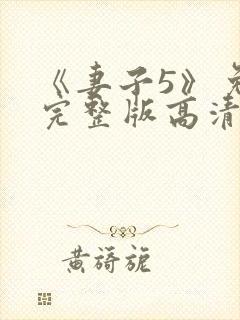 《妻子5》免
完整版高清
黄旖旎